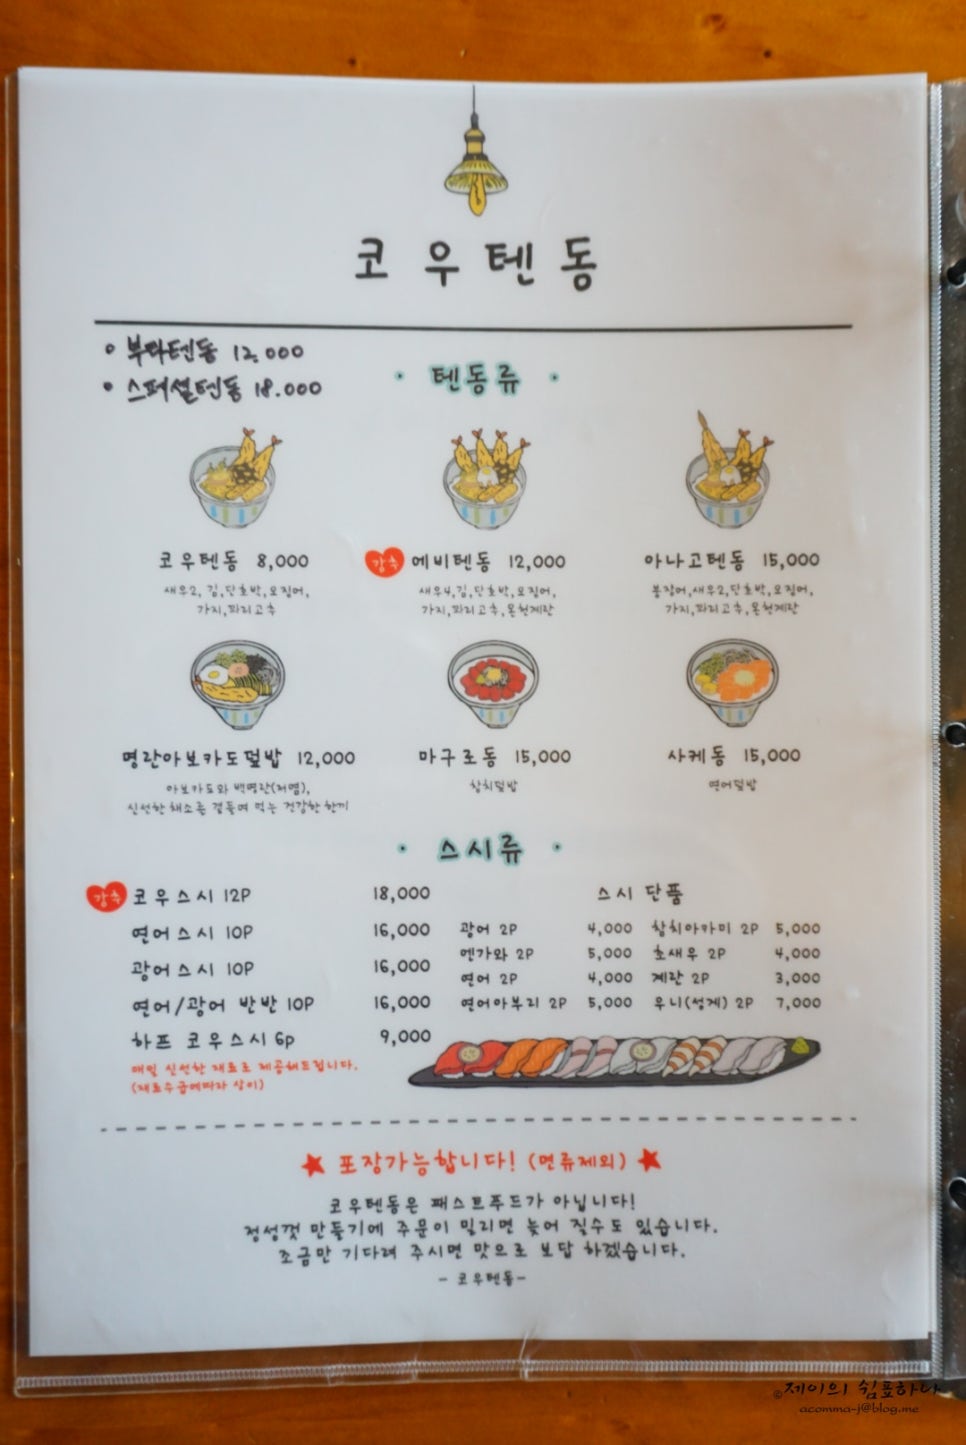 코우텐동
• 부타텐동 12.000
• 스페셜텐동 18.000
· 텐동류 ·
코우텐동 8,000
새우2, 김,단호박,오징어,
가지,꽈리고추
강추 에비텐동 12,000
새우4,김,단호박,오징어,
가지,꽈리고추,온천계란
아나고텐동 15,000
붕장어,새우2,단호박,오징어,
가지,꽈리고추,온천계란
명란아보카도덮밥 12,000
아보카도와 백명란(저염),
신선한 채소를 곁들여 먹는 건강한 한끼
마구로동 15,000
참치덮밥
사케동 15,000
연어덮밥
· 스시류 ·
강추 코우스시 12P 18,000
연어스시 10P 16,000
광어스시 10P 16,000
연어/광어 반반 10P 16,000
하프 코우스시 6p 9,000
매일 신선한 재료로 제공해드립니다.
(재료수급에따라 상이)
스시 단품
광어 2P 4,000 참치아카미 2P 5,000
엔가와 2P 5,000 초새우 2P 4,000
연어 2P 4,000 계란 2P 3,000
연어아부리 2P 5,000 우니(성게) 2P 7,000
★ 포장가능합니다! (면류제외) ★
코우텐동은 패스트푸드가 아닙니다!
정성껏 만들기에 주문이 밀리면 늦어 질수도 있습니다.
조금만 기다려 주시면 맛으로 보답 하겠습니다.
- 코우텐동-
©제이의 쉼표하나
acomma-j@blog.me